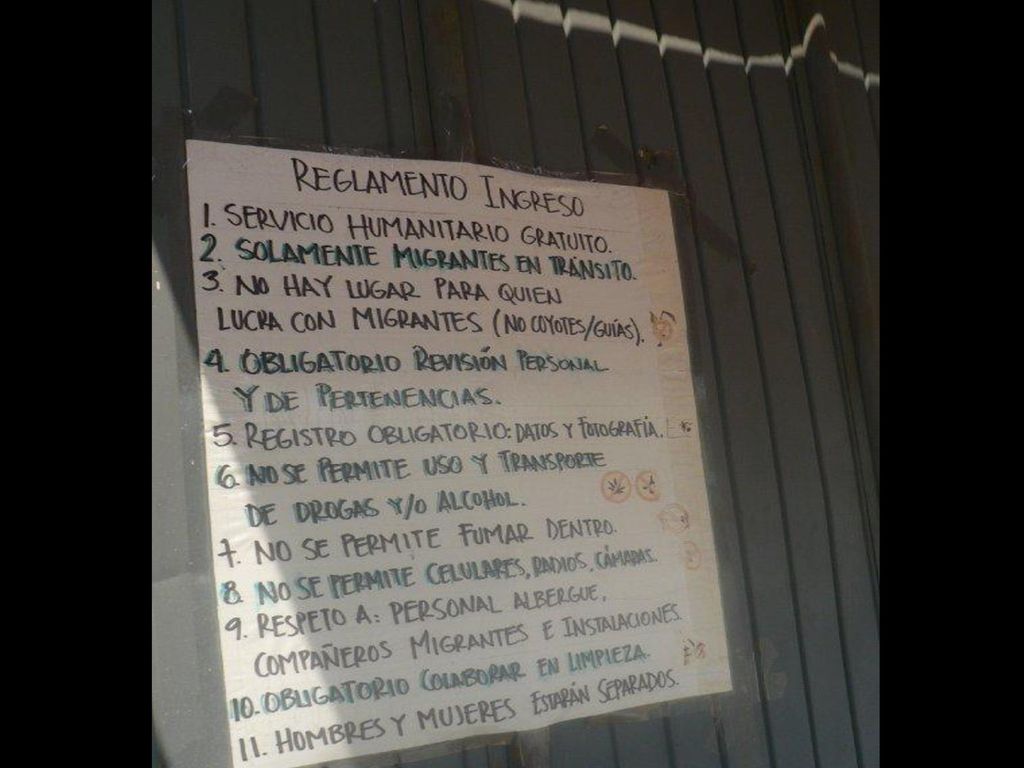 REGLAMENTO INGRESO
1. SERVICIO HUMANITARIO GRATUITO.
2. SOLAMENTE MIGRANTES EN TRÁNSITO.
3. NO HAY LUGAR PARA QUIEN
LUCRA CON MIGRANTES (NO COYOTES/GUÍAS).
4. OBLIGATORIO REVISIÓN PERSONAL
Y DE PERTENENCIAS.
5. REGISTRO OBLIGATORIO: DATOS Y FOTOGRAFÍA.
6. NO SE PERMITE USO Y TRANSPORTE
DE DROGAS Y/O ALCOHOL.
7. NO SE PERMITE FUMAR DENTRO.
8. NO SE PERMITE CELULARES, RADIOS, CÁMARAS.
9. RESPETO A: PERSONAL ALBERGUE,
COMPAÑEROS MIGRANTES E INSTALACIONES.
10. OBLIGATORIO COLABORAR EN LIMPIEZA.
11. HOMBRES Y MUJERES ESTARÁN SEPARADOS.